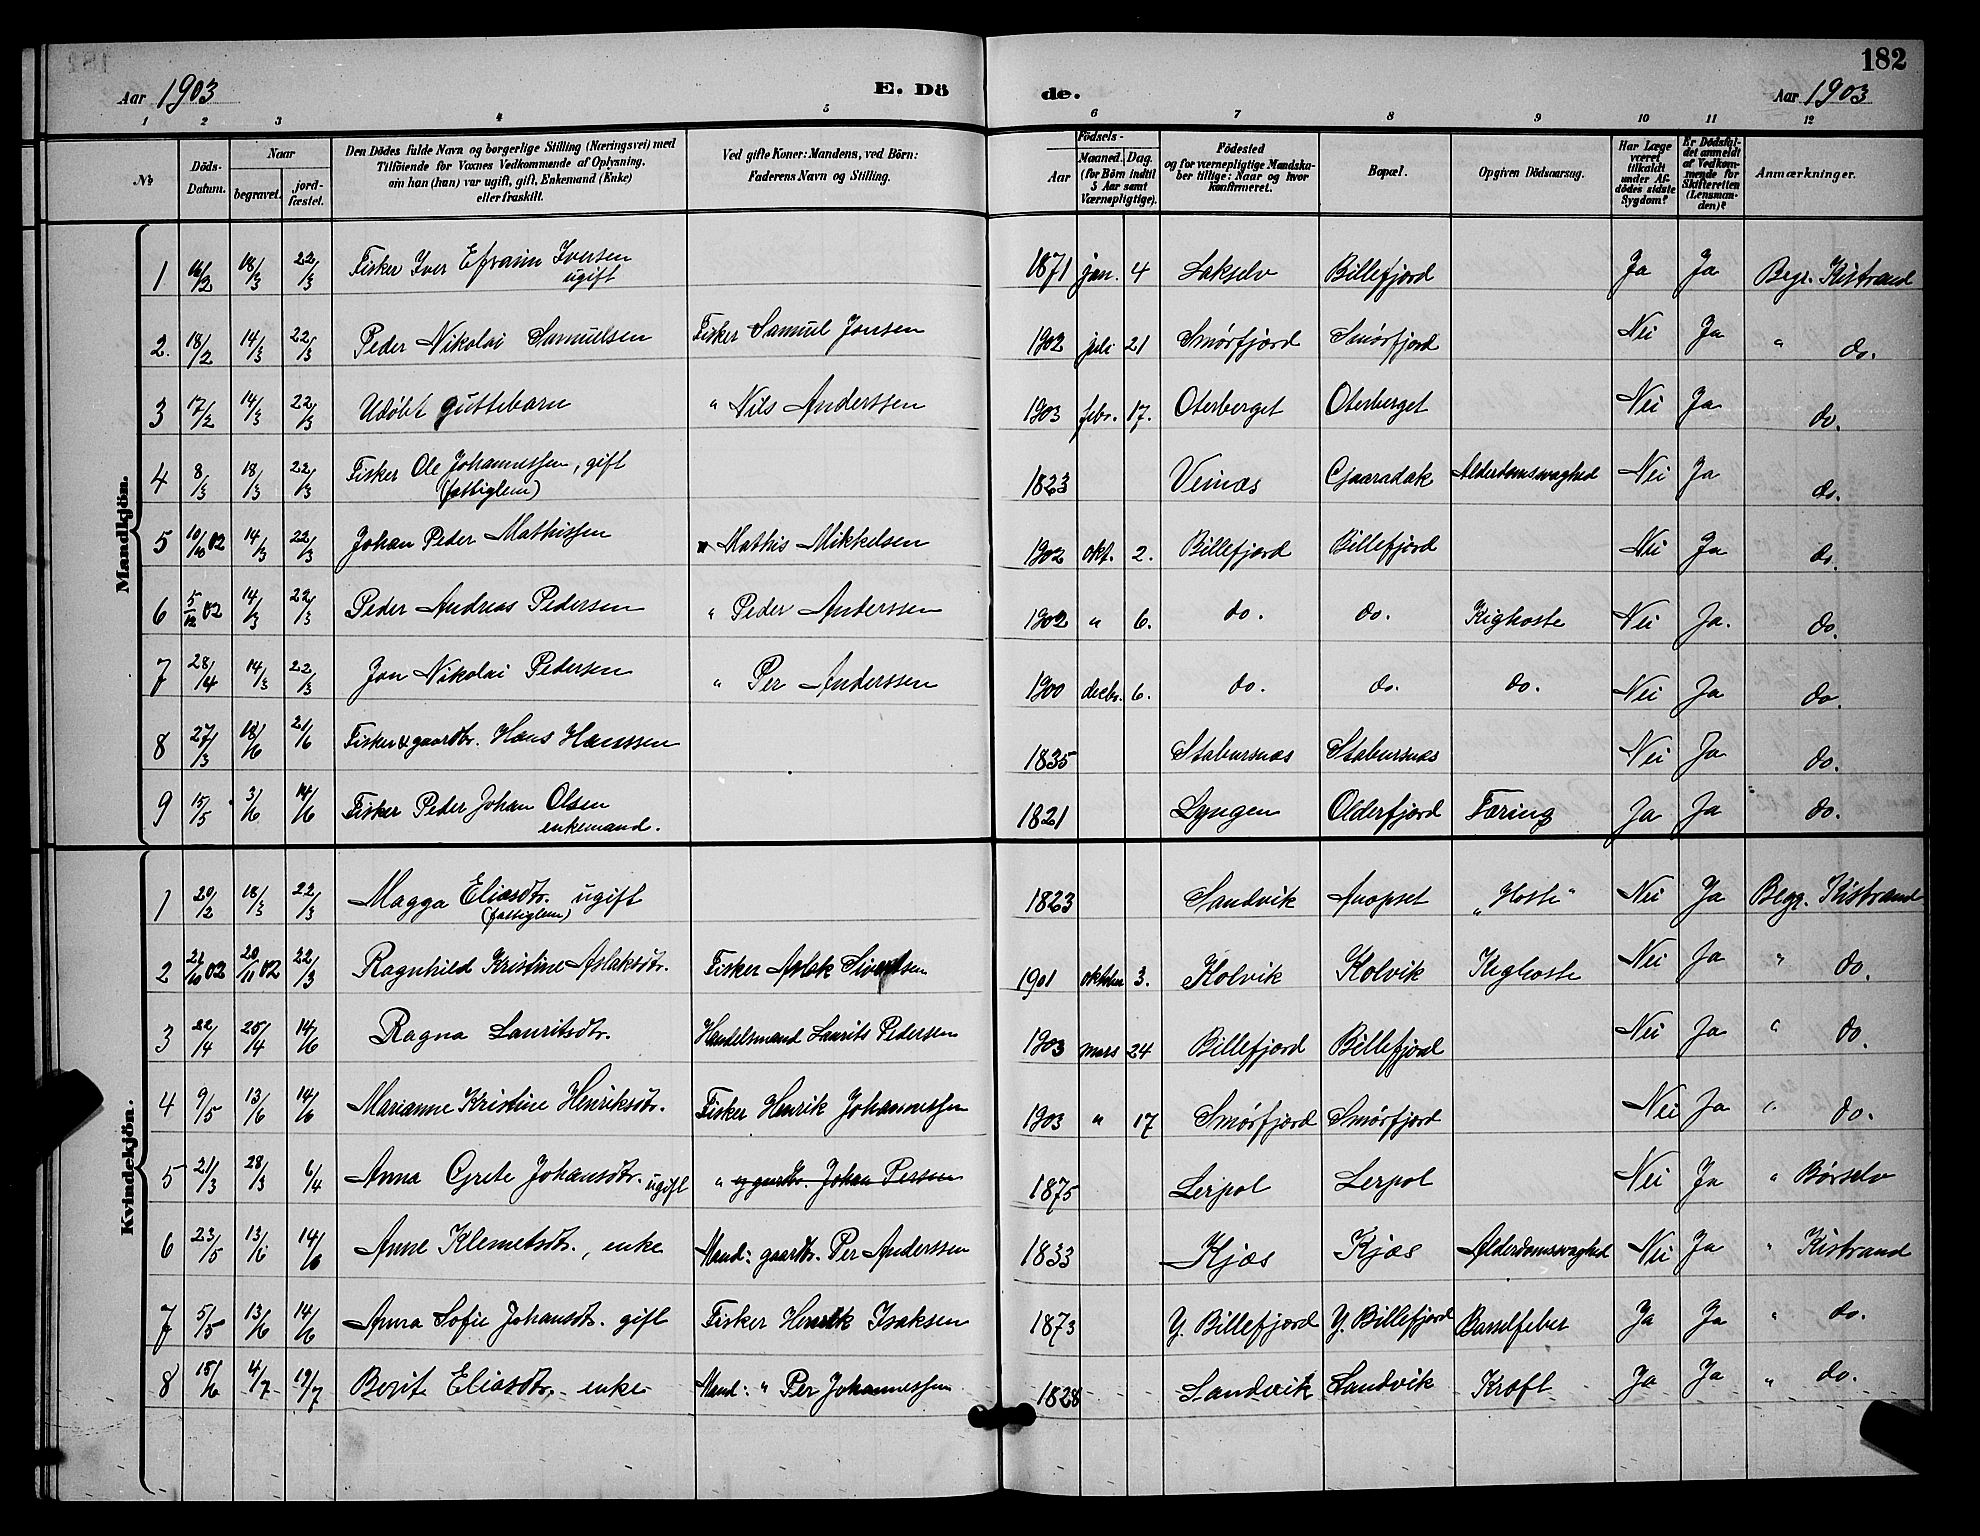 182
Aar 1903 E. Dö de. Aar 1903
1 2 3 4 5 6 7 8 9 10 11 12
№ Döds-Datum. Naar begravet. jord-fæstet. Den Dödes fulde Navn og borgerlige Stilling (Næringsvei) med Tilföiende for Voxnes Vedkommende af Oplysning, om han (hun) var ugift, gift, Enkemand (Enke) eller fraskilt. Ved gifte Koner: Mandens, ved Börn: Faderens Navn og Stilling. Födsels- Aar Maaned. Dag. (for Börn indtil 5 Aar samt Værnepligtige). Födested og for værnepligtige Mandskaber tillige: Naar og hvor konfirmeret. Bopæl. Opgiven Dödsaarsag. Har Læge været tilkaldt under Afdödes sidste Sygdom? Er Dödsfaldet anmeldt af Vedkommende for Skifteretten (Lensmanden)? Anmærkninger.
Mandkjön.
1 16/2 18/3 22/3 Fisker Iver Efraim Iversen ugift 1871 jan. 4 Lakselv Billefjord Ja Ja Begr. Kistrand
2. 18/2 14/3 22/3 Peder Nikolai Samuelsen Fisker Samuel Jonsen 1902 juli 21 Smörfjord Smörfjord Nei Ja " do.
3 17/2 14/3 22/3 Udöbt guttebarn " Nils Anderssen 1903 febr. 17. Oterberget Oterberget Nei Ja do.
4 8/3 18/3 22/3 Fisker Ole Johannessen, gift (fattiglem) 1823 Veinæs Gjaaradak Alderdomssvaghed Nei Ja do.
5 10/10 02 14/3 22/3 Johan Peder Mathissen " Mathis Mikkelsen 1902 okt. 2. Billefjord Billefjord Nei Ja do.
6 5/12 02 14/3 22/3 Peder Andreas Pedersen " Peder Anderssen 1902 " 6. do. do. Kighoste Nei Ja. do.
7 28/4 14/3 22/3 Jon Nikolai Pedersen " Per Anderssen 1900 decbr. 6. do. do. do. Nei Ja do.
8 27/3 18/6 21/6 Fisker & gaardbr. Hans Hanssen 1835 Stabursnæs Stabursnæs Nei Ja do.
9 15/5 3/6 14/6 Fisker Peder Johan Olsen enkemand. 1821 Lyngen Olderfjord Tæring Ja Ja do.
Kvindekjön.
1 20/2 18/3 22/3 Magga Eliasdtr. ugift (fattiglem) 1823 Sandvik Anopset "Hoste" Nei Ja Begr. Kistrand
2 21/10 02 20/11 02 22/3 Ragnhild Kristine Aslaksdtr. Fisker Aslak Sivertsen 1901 oktober 3. Kolvik Kolvik Kighoste Nei Ja " do.
3 22/4 25/4 14/6 Ragna Lauritsdtr. Handelsmand Laurits Pedersen 1903 mars 24 Billefjord Billefjord Nei Ja " do.
4 9/5 13/6 14/6 Marianne Kristine Henriksdtr. Fisker Henrik Johannessen 1903 " 17 Smörfjord Smörfjord Nei Ja " do.
5 21/3 28/3 6/4 Anna Grete Johansdtr. ugift " og gaardbr. Johan Persen 1875 Lerpol Lerpol Nei Ja " Börselv
6 23/5 13/6 14/6 Anne Klemetsdtr., enke Mand: gaardbr. Per Anderssen 1833 Kjæs Kjæs Alderdomssvaghed Nei Ja " Kistrand
7 5/5 13/6 14/6 Anna Sofie Johansdtr. gift Fisker Henrik Isaksen 1873 Y. Billefjord Y. Billefjord Barselfeber Ja Ja " do.
8 15/6 4/7 19/7 Berit Eliasdtr. enke Mand: " Per Johannessen 1828 Sandvik Sandvik Kræft Ja Ja " do.